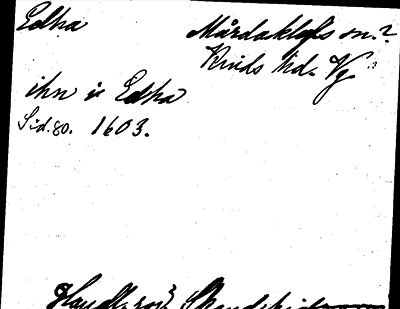 Edha Mårdaklefs sn.?
Kinds hd. Vg?
ihn i Edha
Sid. 80. 1603.
Handl. rör. Skandi